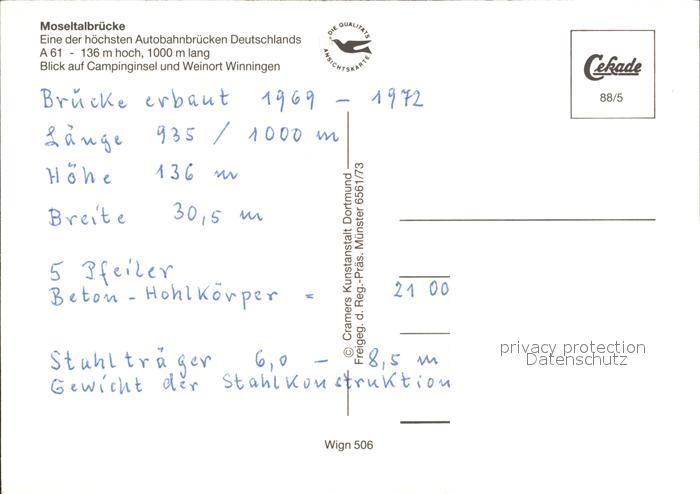 Moseltalbrücke
Eine der höchsten Autobahnbrücken Deutschlands
A 61 - 136 m hoch, 1000 m lang
Blick auf Campinginsel und Weinort Winningen
DIE QUALITÄTS ANSICHTSKARTE
Cekade
88/5
Brücke erbaut 1969 - 1972
Länge 935 / 1000 m
Höhe 136 m
Breite 30,5 m
5 Pfeiler
Beton-Hohlkörper = 21 00
Stahlträger 6,0 - 8,5 m
Gewicht der Stahlkonstruktion
© Cramers Kunstanstalt Dortmund
Freigeg. d. Reg.-Präs. Münster 6561/73
privacy protection
Datenschutz
Wign 506